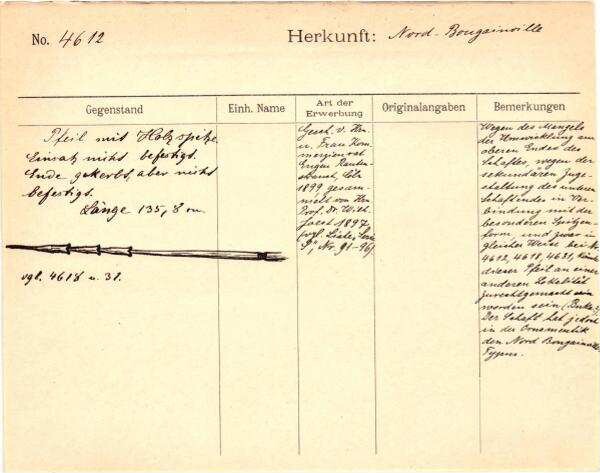 No. 4612
Herkunft: Nord-Bougainville
Gegenstand
Einh. Name
Art der Erwerbung
Originalangaben
Bemerkungen
Pfeil mit Holzspitze.
Einsatz nicht befestigt.
Ende gekerbt, aber nicht
befestigt.
Länge 135,8 cm.
vgl. 4618 u. 31.
Gesch. v. Hrn.
u. Frau Kom-
merzienrat
Eugen Rauten-
strauch, Cöln
1899 gesam-
melt von Hrn
Prof. Dr. Wilh.
Joest 1897
vgl. Liste, Serie
Nr. 91-96
Wegen des Mangels
der Umwicklung am
oberen Endes des
Schaftes, wegen der
sekundären Zuge-
staltung des unteren
Schaftendes in Ver-
bindung mit der
besonderen Spitzen-
form und zwar in
gleicher Weise bei Nr.
4612, 4618, 4631, könnte
dieser Pfeil an einer
anderen Lokalität
zurechtgemacht sein
worden sein
Der Schaft hat jedoch
in der Ornamentik
den Nord Bougainville
Typus.